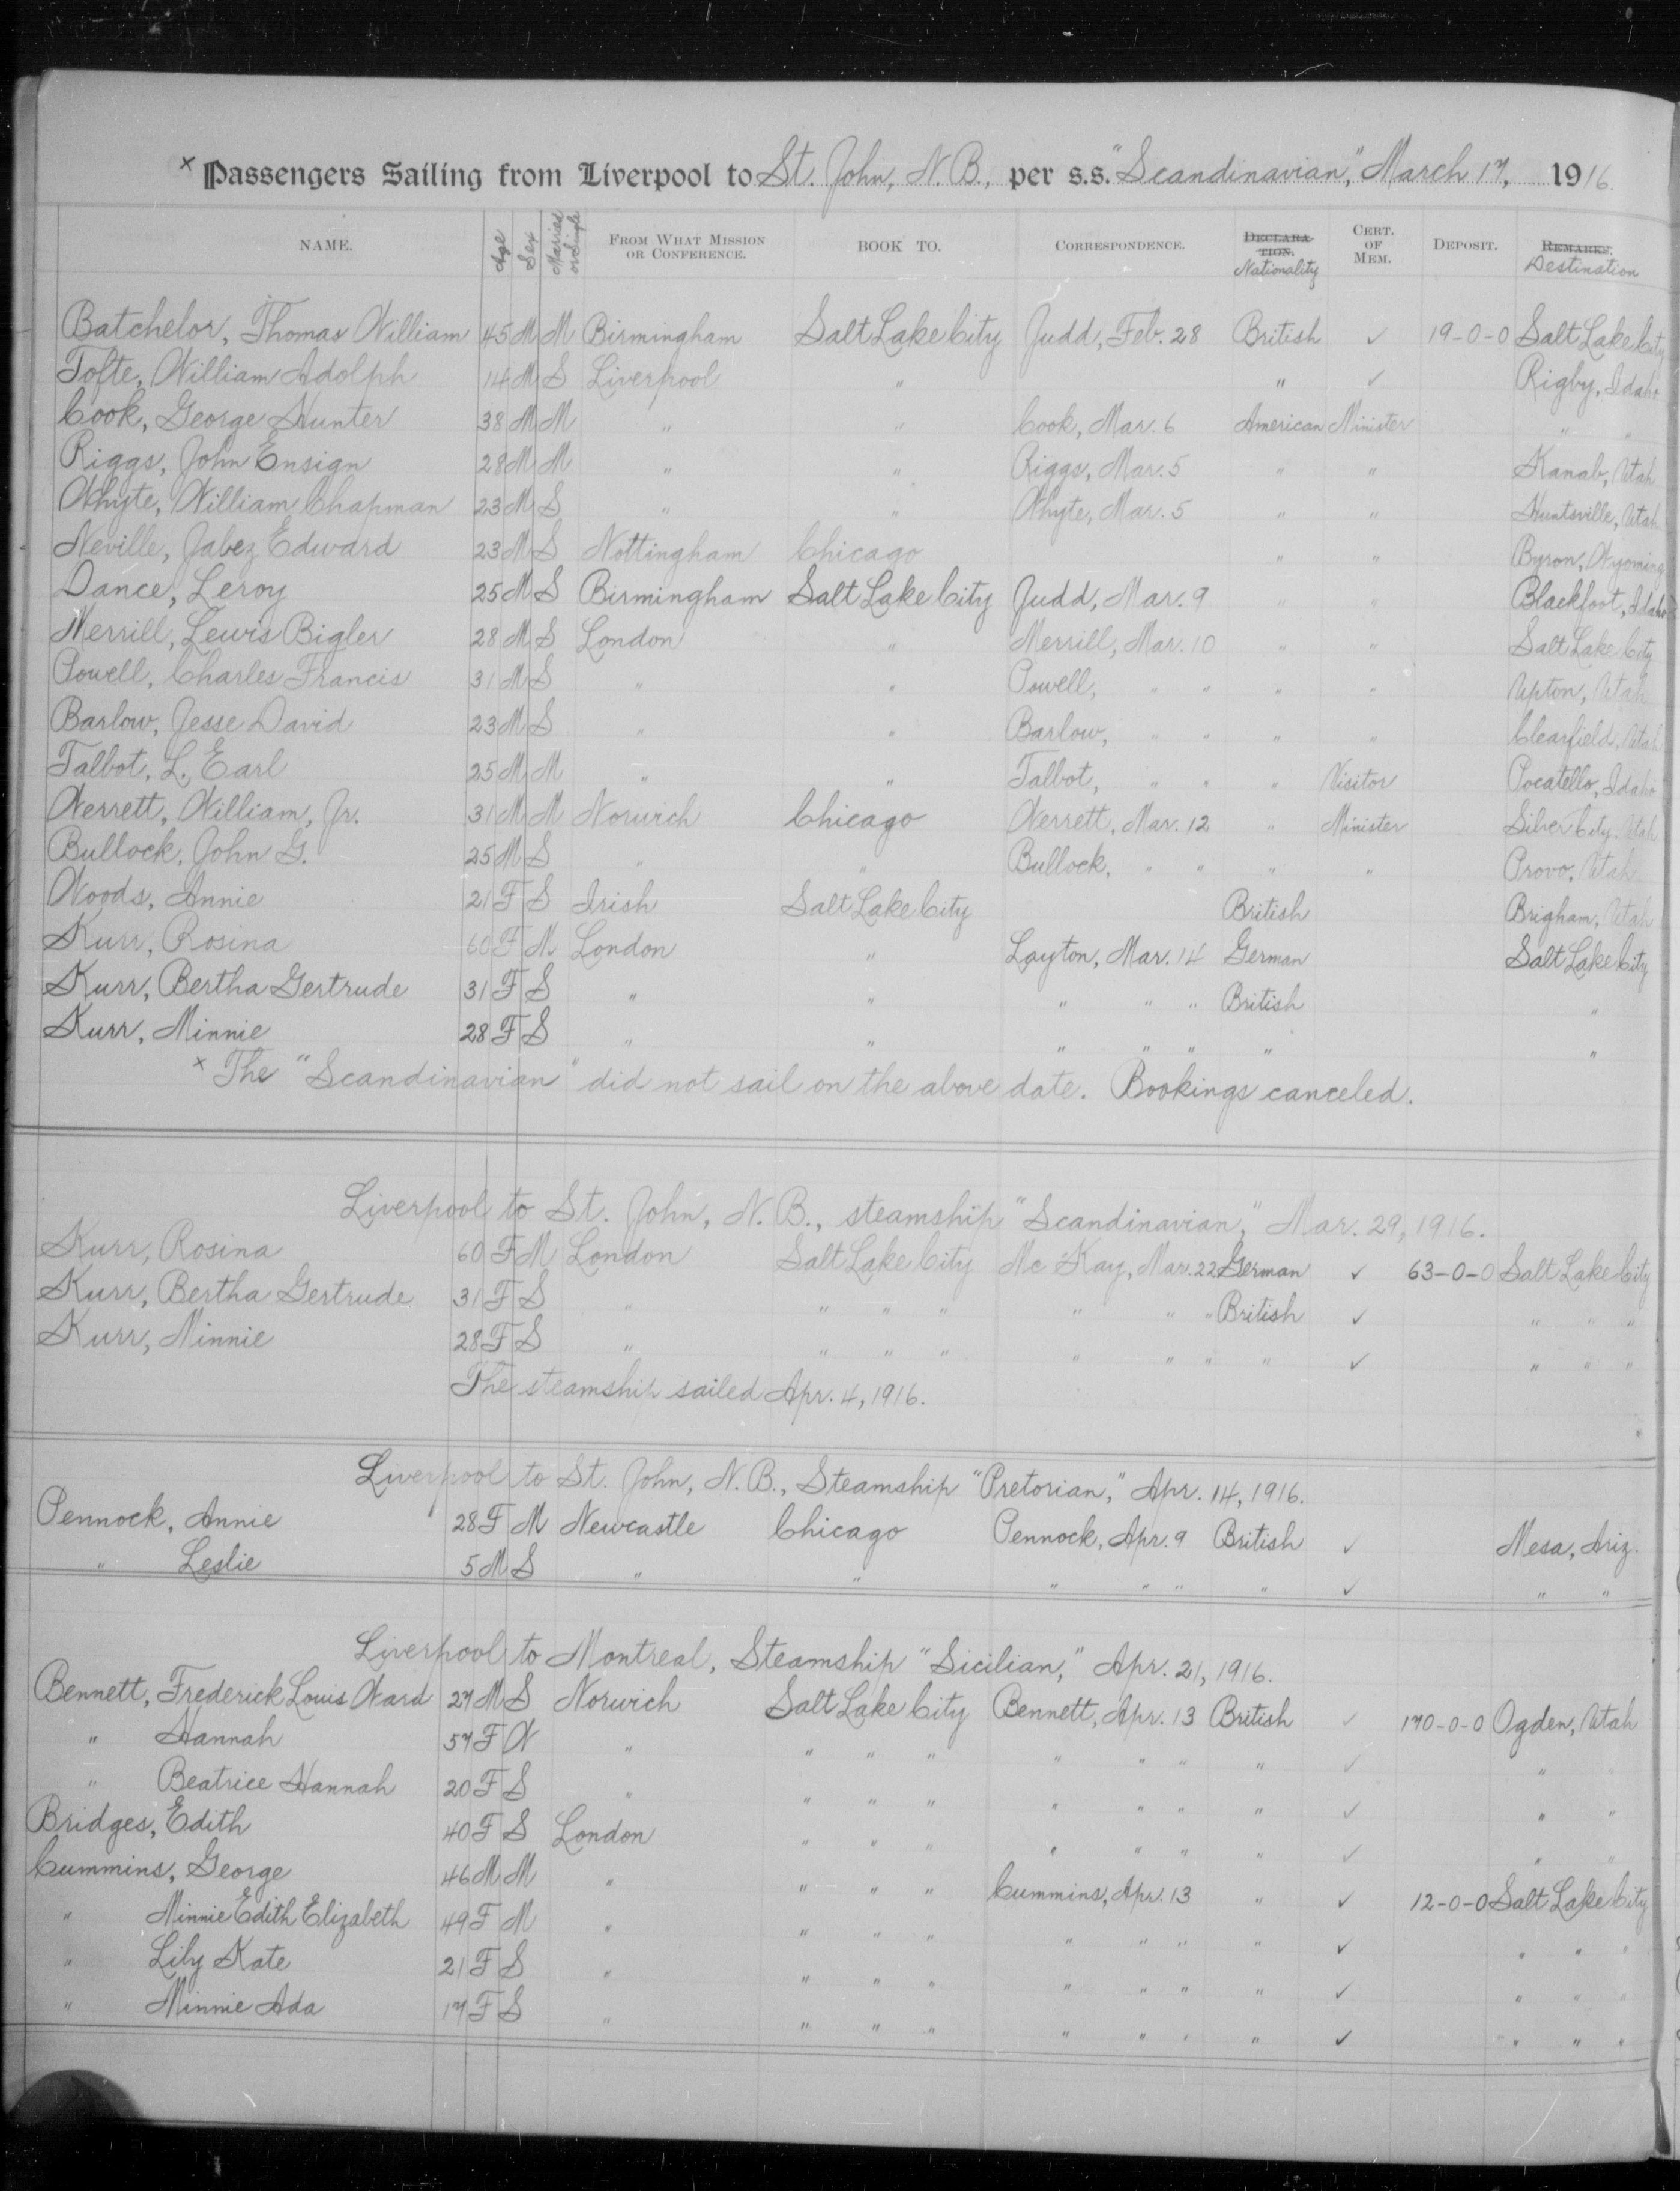 × Passengers Sailing from Liverpool to St. John, N.B., per s.s. "Scandinavian," March 17, 1916.
NAME. Age Sex Married or Single FROM WHAT MISSION OR CONFERENCE. BOOK TO. CORRESPONDENCE. DECLARATION. Nationality CERT. OF MEM. DEPOSIT. REMARKS. Destination
Batchelor, Thomas William 45 M M Birmingham Salt Lake City Judd, Feb. 28 British ✓ 19-0-0 Salt Lake City
Tofte, William Adolph 14 M S Liverpool " " ✓ Rigby, Idaho
Cook, George Hunter 38 M M " " Cook, Mar. 6 American Minister " "
Riggs, John Ensign 28 M M " " Riggs, Mar. 5 " " Kanab, Utah
Whyte, William Chapman 23 M S " " Whyte, Mar. 5 " " Huntsville, Utah
Neville, Jabez Edward 23 M S Nottingham Chicago " " Byron, Wyoming
Dance, Leroy 25 M S Birmingham Salt Lake City Judd, Mar. 9 " " Blackfoot, Idaho
Merrill, Lewis Bigler 28 M S London " Merrill, Mar. 10 " " Salt Lake City
Powell, Charles Francis 31 M S " " Powell, " " " " Upton, Utah
Barlow, Jesse David 23 M S " " Barlow, " " " " Clearfield, Utah
Talbot, L. Earl 25 M M " " Talbot, " " " Visitor Pocatello, Idaho
Werrett, William, Jr. 31 M M Norwich Chicago Werrett, Mar. 12 " Minister Silver City, Utah
Bullock, John G. 25 M S " " Bullock, " " " " Provo, Utah
Woods, Annie 21 F S Irish Salt Lake City British Brigham, Utah
Kurr, Rosina 60 F M London " Layton, Mar. 14 German Salt Lake City
Kurr, Bertha Gertrude 31 F S " " " " " British "
Kurr, Minnie 28 F S " " " " " " "
× The "Scandinavian" did not sail on the above date. Bookings canceled.
Liverpool to St. John, N.B., steamship "Scandinavian," Mar. 29, 1916.
Kurr, Rosina 60 F M London Salt Lake City McKay, Mar. 22 German ✓ 63-0-0 Salt Lake City
Kurr, Bertha Gertrude 31 F S " " " " " " " British ✓ " " "
Kurr, Minnie 28 F S " " " " " " " " ✓ " " "
The steamship sailed Apr. 4, 1916.
Liverpool to St. John, N.B., Steamship "Pretorian," Apr. 14, 1916.
Pennock, Annie 28 F M Newcastle Chicago Pennock, Apr. 9 British ✓ Mesa, Ariz.
" Leslie 5 M S " " " " " " ✓ " "
Liverpool to Montreal, Steamship "Sicilian," Apr. 21, 1916.
Bennett, Frederick Louis Ward 27 M S Norwich Salt Lake City Bennett, Apr. 13 British ✓ 170-0-0 Ogden, Utah
" Hannah 57 F W " " " " " " " " ✓ " "
" Beatrice Hannah 20 F S " " " " " " " " ✓ " "
Bridges, Edith 40 F S London " " " " " " " ✓ " "
Cummins, George 46 M M " " " " Cummins, Apr. 13 " ✓ 12-0-0 Salt Lake City
" Minnie Edith Elizabeth 49 F M " " " " " " " " ✓ " " "
" Lily Kate 21 F S " " " " " " " " ✓ " " "
" Minnie Ada 17 F S " " " " " " " " ✓ " " "